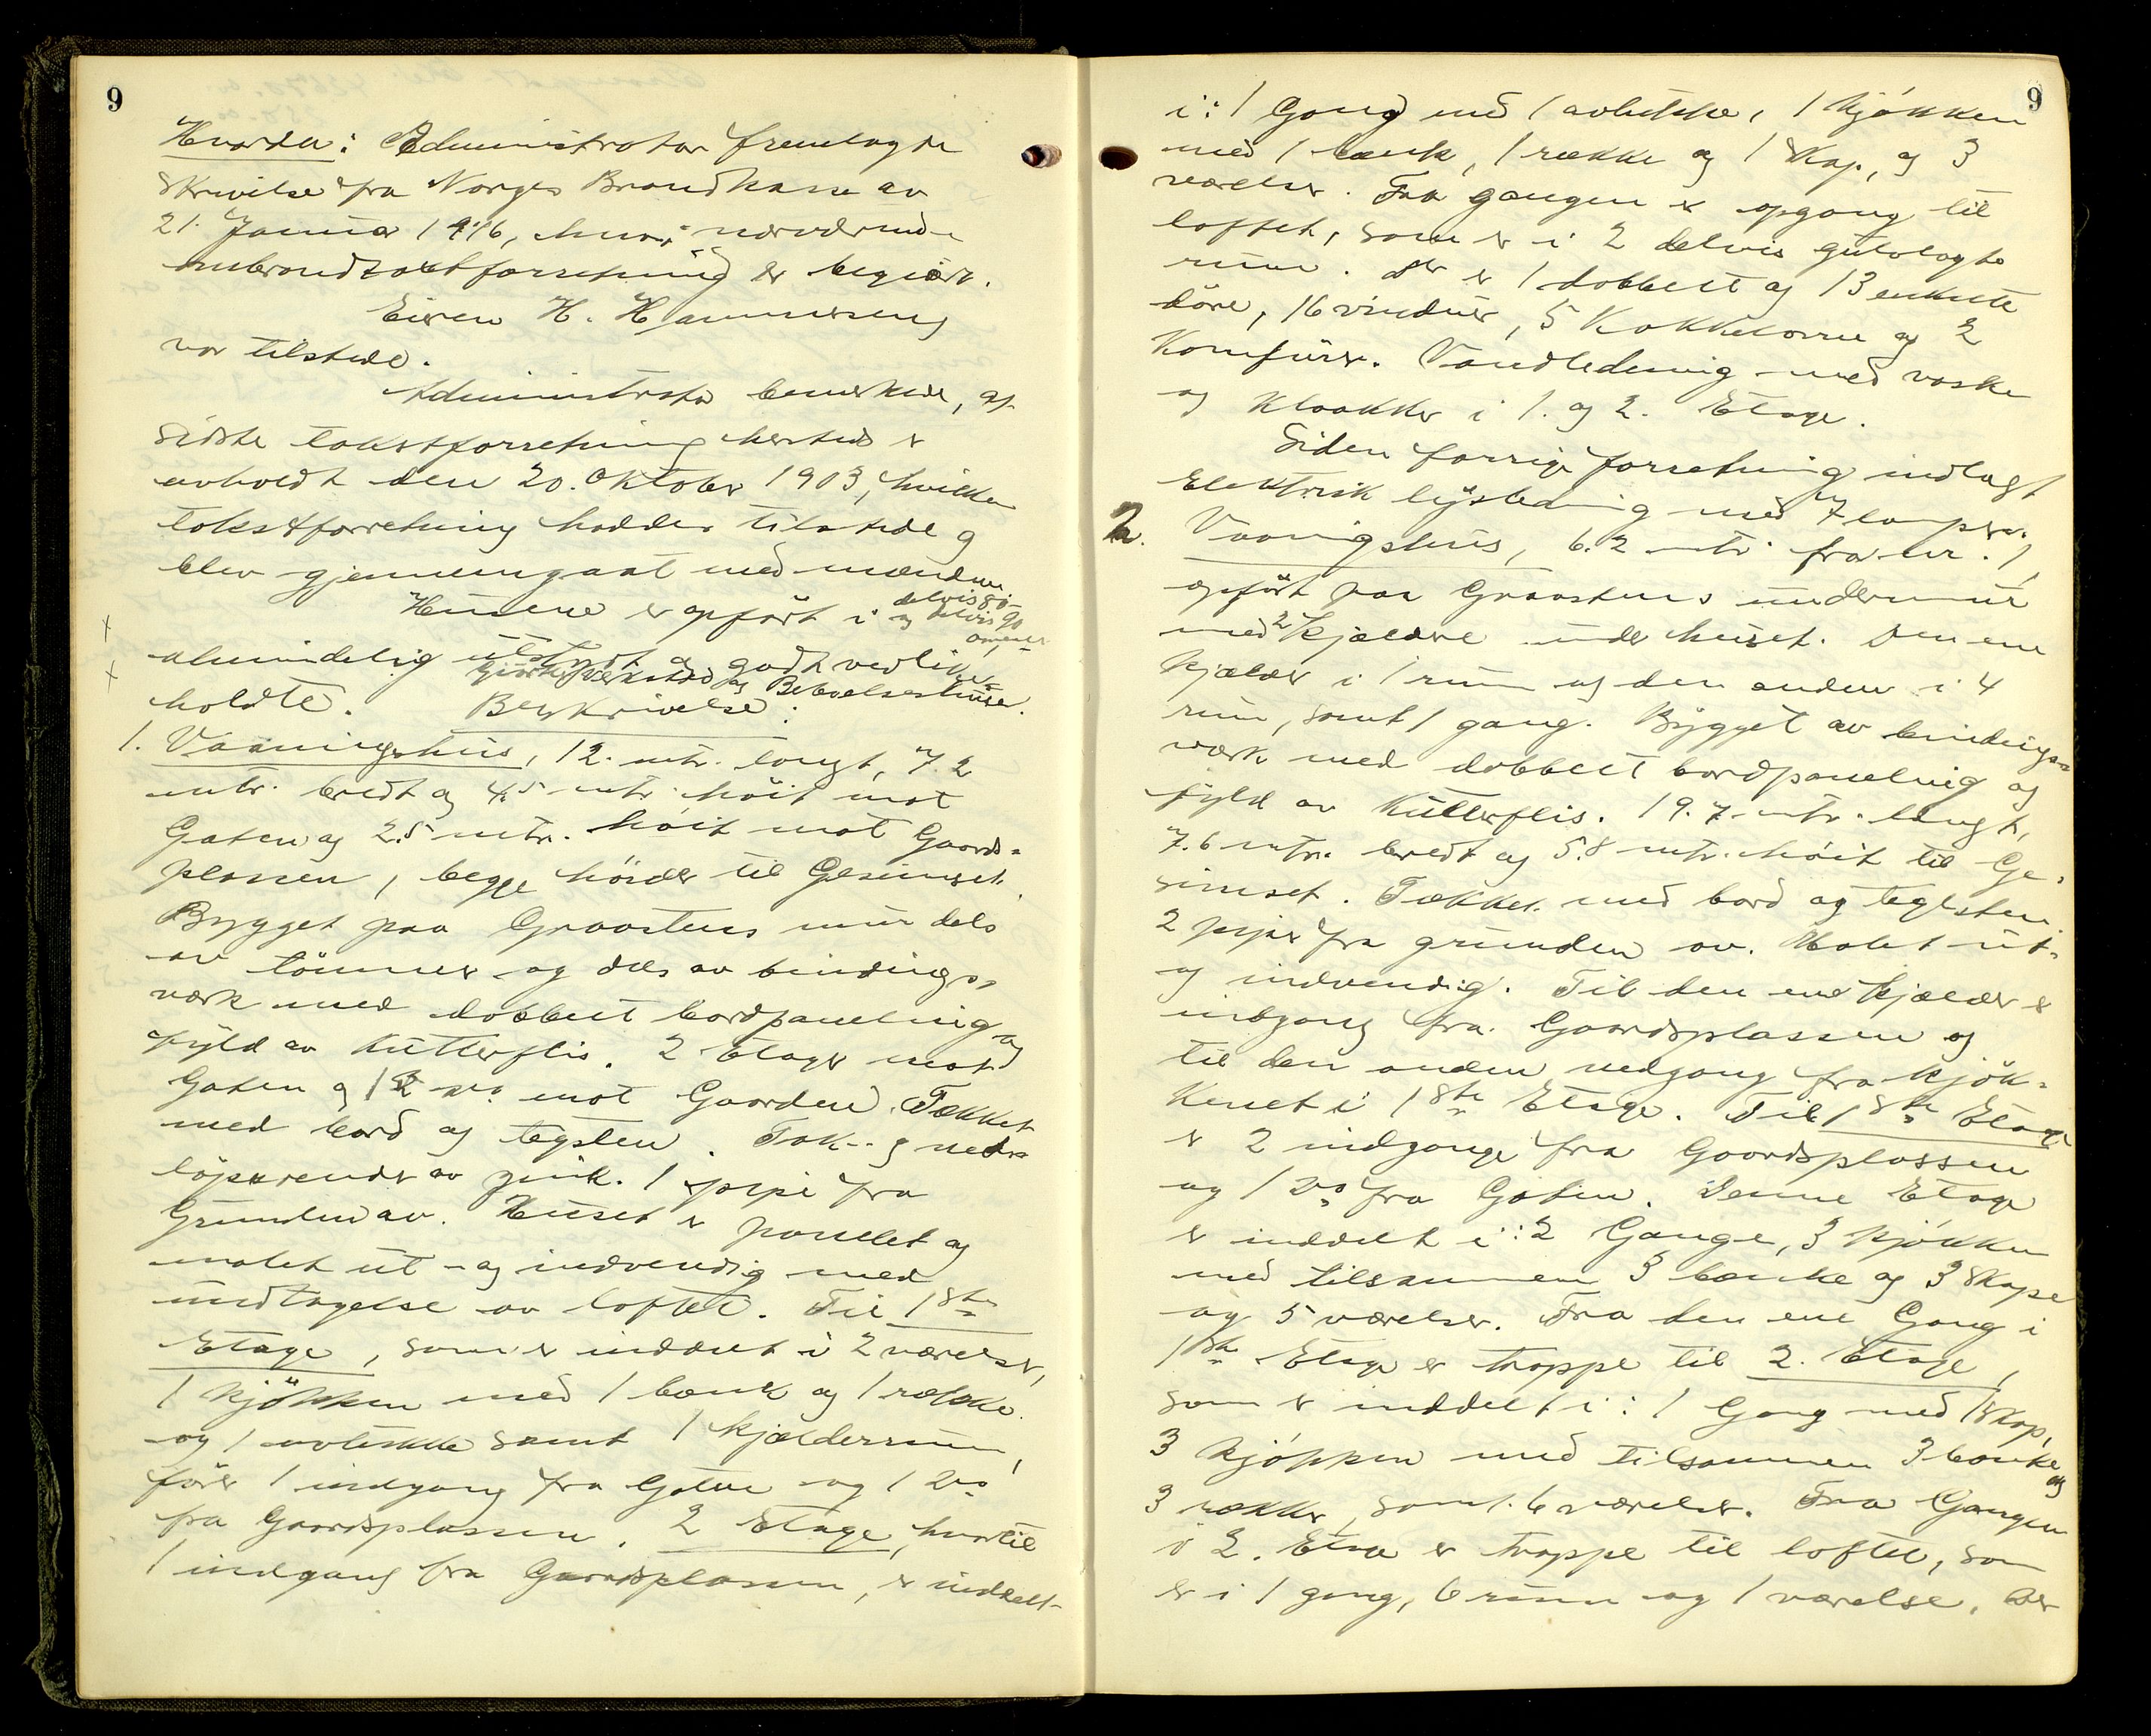 9
Hvorda: Administrator fremlagde
skrivelse fra Norges Brandkasse av
21. Januar 1916, hvori nærværende
ombrandtakstforretning er begjært.
Eieren H. Hammerseng
var tilstede.
Administrator bemerkede, at
sidste takstforretning hersteds er
avholdt den 20. Oktober 1903, hvilken
takstforretning haddes tilstede og
blev gjennemgaat med mændene
Husene er opført i delvis 80-
og delvis 90
aarene,
almindelig utstyrt og godt vedlike-
Gjørtlerverksted og Beboelseshuse.
holdte. Beskrivelse:
1. Vaaningshus, 12. mtr. langt, 7.2
mtr. bredt og 4.5 mtr. höit mot
Gaten og 2.5 mtr. höit mot Gaards-
plassen, begge höider til Gesimset.
Bygget paa Graastens mur dels
av tömmer og dels av bindings-
værk med dobbelt bordpaneling og
fyld av Kutterflis. 2 Etager mot
Gaten og 1 do mot Gaarden. Tækket
med bord og tegsten. Tak- og ned-
löpsrender av zink. 1 pipe fra
Grunden av. Huset er panelet og
malet ut- og indvendig med
undtagelse av loftet. Til 1ste
Etage, som er inddelt i 2 værelser,
1 kjökken med 1 bænk og 1 række
og 1 avlukke samt 1 kjælderrum,
förer 1 indgang fra Gaten og 1 do
fra Gaardsplassen. 2 Etage, hvortil
1 indgang fra Gaardsplassen, er inddelt
9
i: 1 Gang med 1 avlukke, 1 kjökken
med 1 bænk, 1 række og 1 skap, og 3
værelser. Fra gangen er opgang til
loftet, som er i 2 delvis gulvlagte
rum. Der er 1 dobbelt og 13 enkelte
döre, 16 vinduer, 5 Kakkelovne og 2
Komfurer. Vandledning med vaske
og kloakker i 1. og 2. Etage.
Siden forrige forretning indlagt
Elektrisk lysledning med 7 lamper.
2. Vaaningshus, 6.2 mtr. fra nr. 1,
opfört paa Graastens undermur
med 2 kjældere under huset. Den ene
kjælder i 1 rum og den anden i 4
rum, samt 1 gang. Bygget av bindings-
værk med dobbelt bordpaneling og
fyld av Kutterflis. 19.7 mtr. langt,
7.6 mtr. bredt og 5.8 mtr. höit til Ge-
simset. Tækket med bord og teglsten
2 piper fra grunden av. Malet ut-
og indvendig. Til den ene kjælder er
indgang fra Gaardsplassen og
til den anden nedgang fra kjök-
kenet i 1ste Etage. Til 1ste Etage
er 2 indgange fra Gaardsplassen
og 1 do fra Gaten. Denne Etage
er inddelt i: 2 Gange, 3 kjökken
med tilsammen 3 bænke og 3 skape
og 5 værelser. Fra den ene Gang i
1ste Etage er trappe til 2. Etage,
som er inddelt i: 1 Gang med 1 skap,
3 kjökken med tilsammen 3 bænke og
3 rækker, samt 6 værelser. Fra Gangen
i 2. Etage er trappe til loftet, som
er i 1 gang, 6 rum og 1 værelse. Der